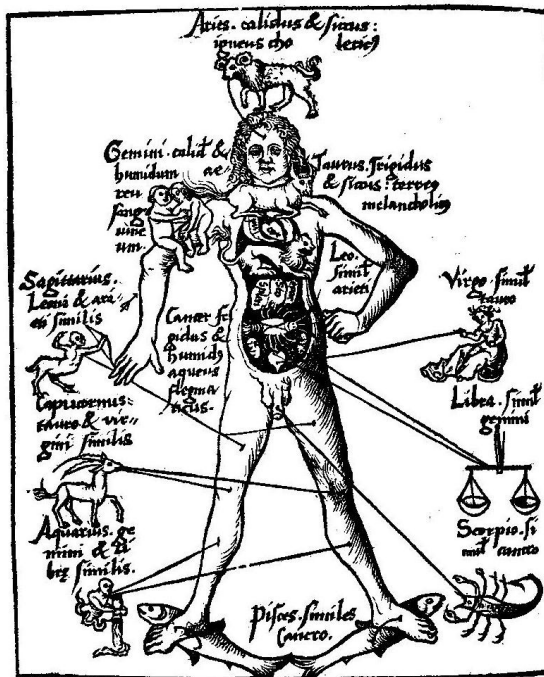 Aries . calidus & siccus :
igneus cho lericꝰ
Gemini . calid &
humidum ae
reu
sang
uine
um .
Taurus . frigidus
& siccus : terreꝰ
melancholicꝰ
Leo .
simil
arieti
Sagittarius .
Leoni & ari
eti similis
Cancer fri
gidus &
humidꝰ
aqueus
flegma
ticus .
Virgo . simil
tauro
Capricornus .
tauro & vir=
gini similis
Libra . simil
gemini
Aquarius . ge
mini & li
bre similis .
Scorpio . si
mil cancro
Pisces . similes
Cancro .